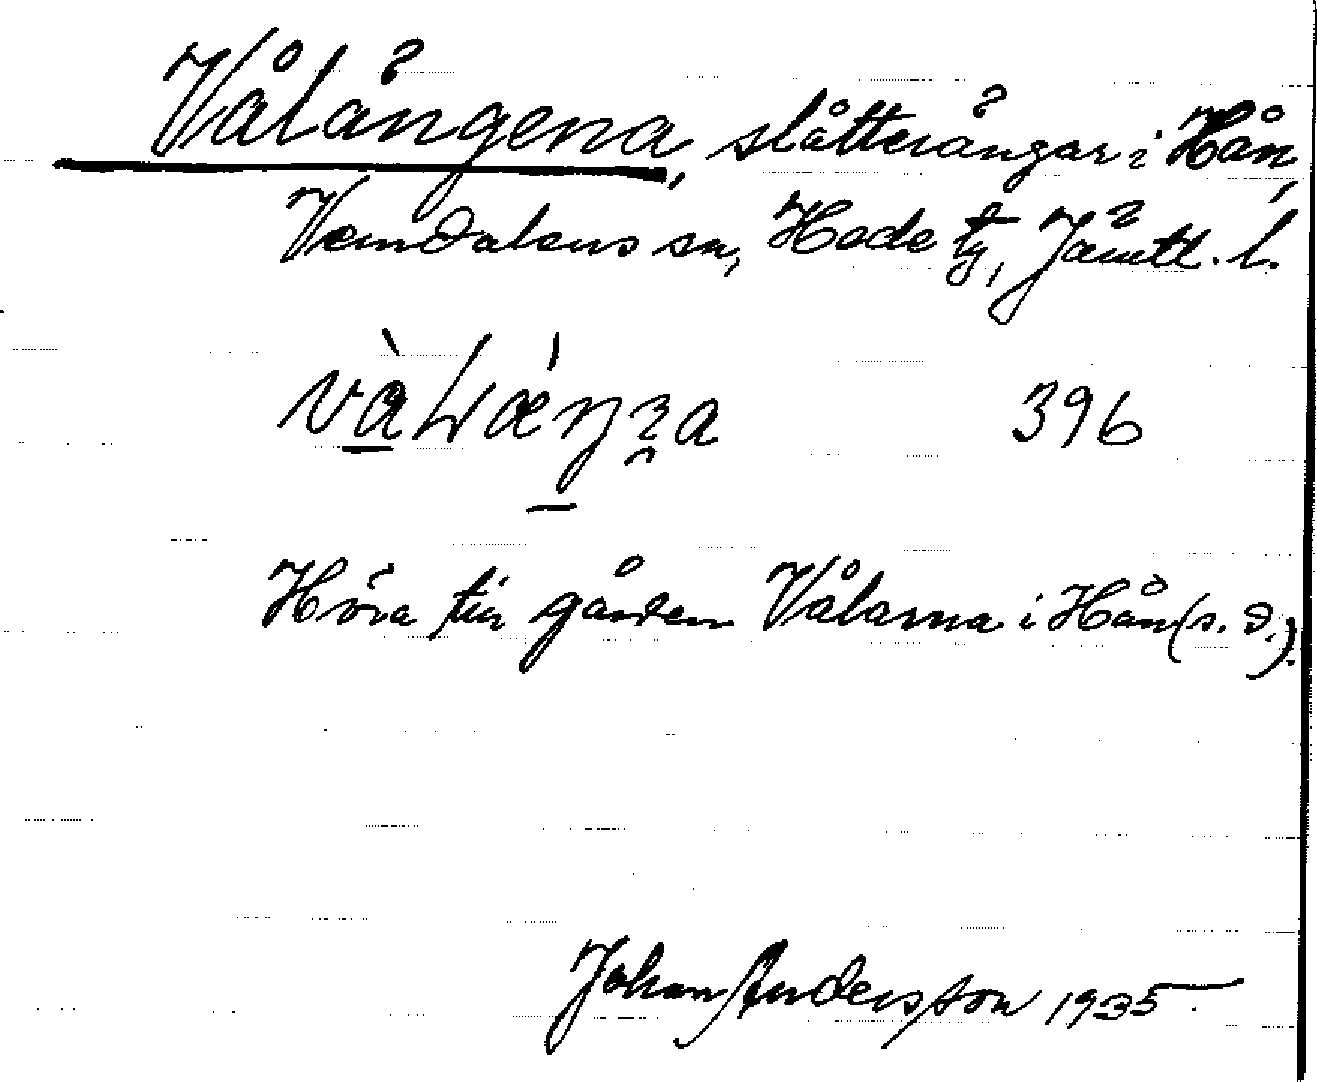 Vålängena, slåtterängar i Hån,
Vemdalens sn, Hede tg, Jämtl. l.
396
Höra till gården Vålarna i Hån (s. d.).
Johan Andersson 1935.